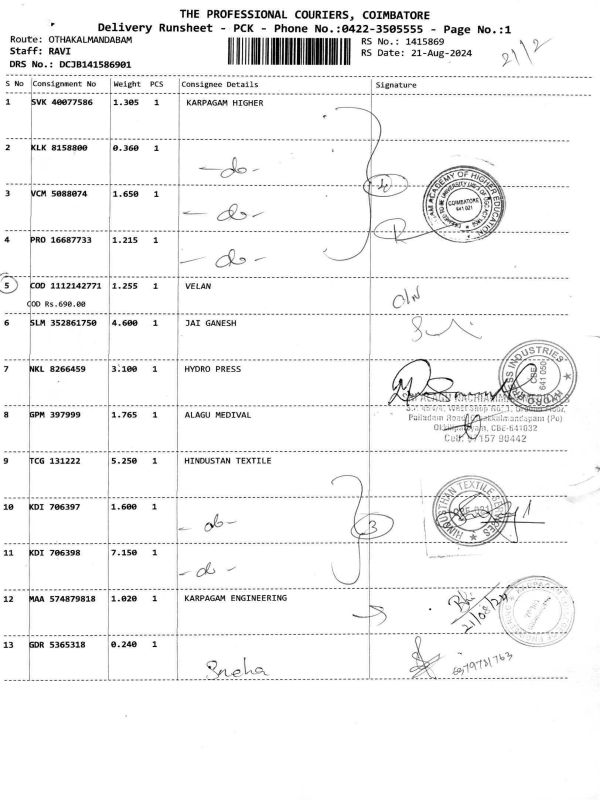 THE PROFESSIONAL COURIERS, COIMBATORE
Delivery Runsheet - PCK - Phone No.:0422-3505555 - Page No.:1
Route: OTHAKALMANDABAM
Staff: RAVI
DRS No.: DCJB141586901
RS No.: 1415869
RS Date: 21-Aug-2024
2/12
S No Consignment No Weight PCS Consignee Details Signature
1 SVK 40077586 1.305 1 KARPAGAM HIGHER
2 KLK 8158800 0.360 1
-do-
3 VCM 5088074 1.650 1
-do-
4 PRO 16687733 1.215 1
-do-
4
COIMBATORE
641 021
5 COD 1112142771 1.255 1 VELAN
COD Rs.690.00
O/N
6 SLM 352861750 4.600 1 JAI GANESH
7 NKL 8266459 3.100 1 HYDRO PRESS
HYDRO PRESS INDUSTRIES
CBE
641 050
8 GPM 397999 1.765 1 ALAGU MEDIVAL
Palladam Road, Othakkalmandapam (Po)
CBE-641032
9 TCG 131222 5.250 1 HINDUSTAN TEXTILE
10 KDI 706397 1.600 1
-do-
3
11 KDI 706398 7.150 1
-do-
12 MAA 574879818 1.020 1 KARPAGAM ENGINEERING
21/08/24
13 GDR 5365318 0.240 1
Sneha